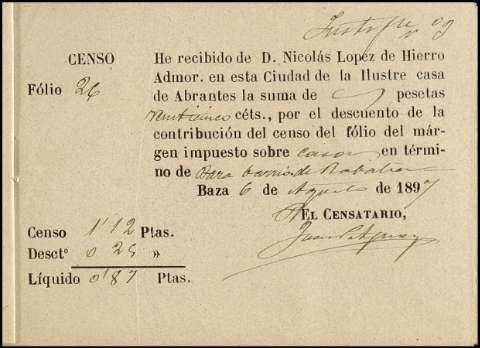 CENSO
Fólio 26
He recibido de D. Nicolás Lopéz de Hierro
Admor. en esta Ciudad de la Ilustre casa
de Abrantes la suma de pesetas
veinticinco céts., por el descuento de la
contribución del censo del fólio del már-
gen impuesto sobre casa en térmi-
no de Baza barrio de Rabatea
Baza 6 de Agosto de 1897
EL CENSATARIO,
Censo 1'12 Ptas.
Desct° 0 25 »
Líquido 0'87 Ptas.